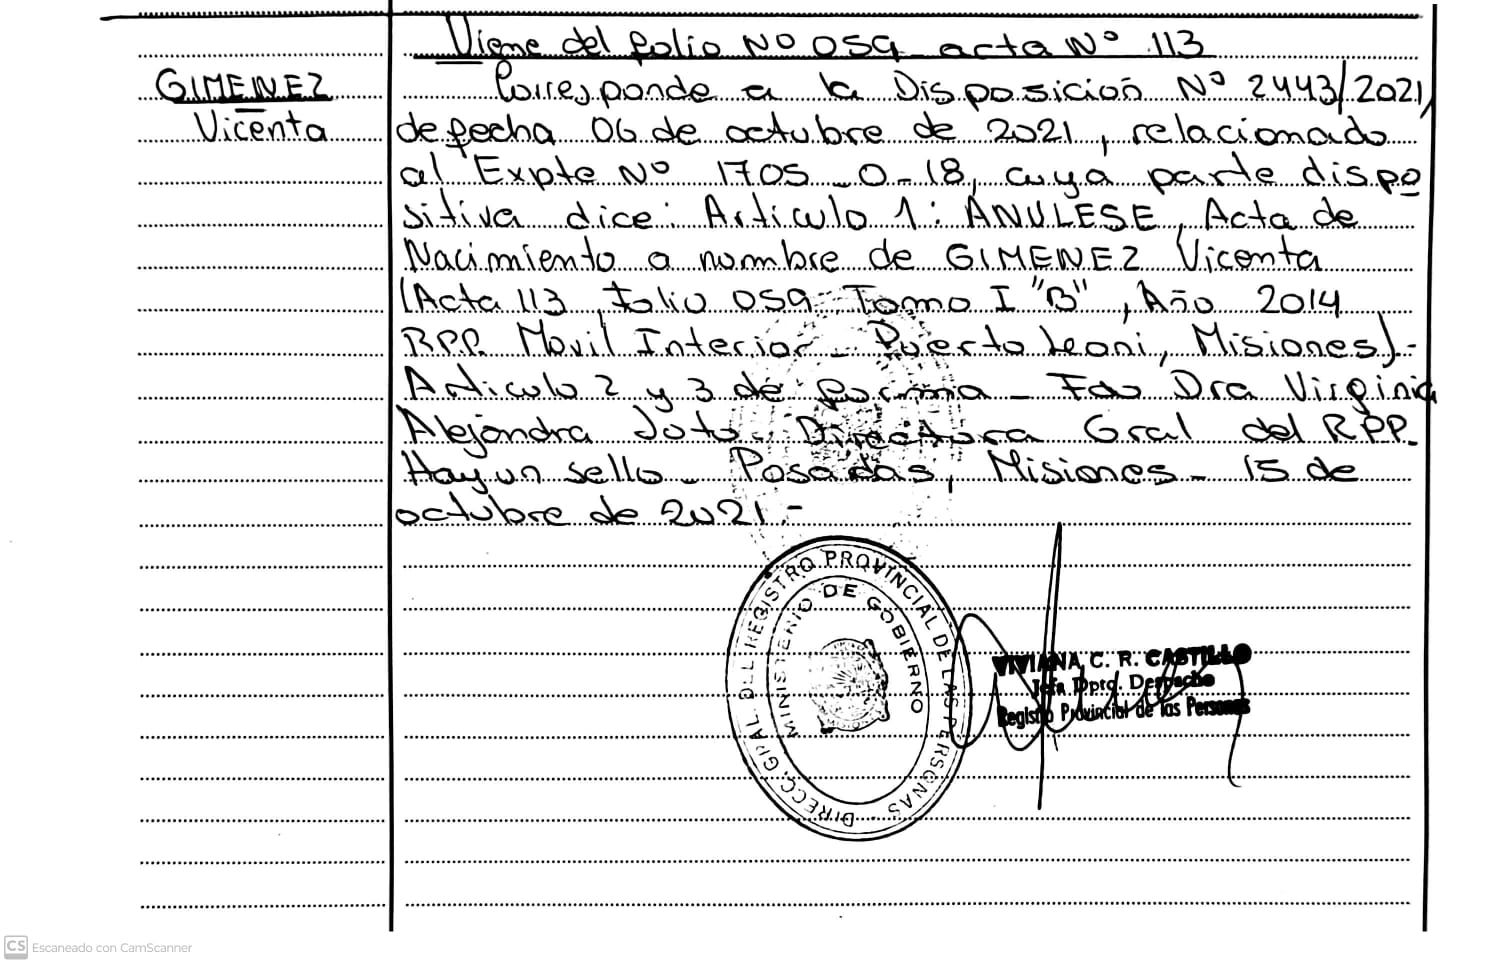 Viene del folio Nº 059 acta Nº 113
GIMENEZ
Vicenta
Corresponde a la Disposición Nº 2443/2021,
de fecha 06 de octubre de 2021, relacionado
al Expte Nº 1705_0-18, cuya parte dispo
sitiva dice: Articulo 1: ANULESE, Acta de
Nacimiento a nombre de GIMENEZ Vicenta
(Acta 113, Folio 059 Tomo I "B", Año 2014
RPP. Movil Interior - Puerto Leoni, Misiones).-
Articulo 2 y 3 de forma - Fdo Dra Virginia
Alejandra Directora Gral del RPP.
Hay un sello - Posadas, Misiones - 15 de
octubre de 2021.-
DIRECC. GRAL. DEL REGISTRO PROVINCIAL DE LAS PERSONAS -
MINISTERIO DE GOBIERNO
VIVIANA C. R. CASTILLO
Jefa Dpto. Despacho
Registro Provincial de las Personas
CS Escaneado con CamScanner